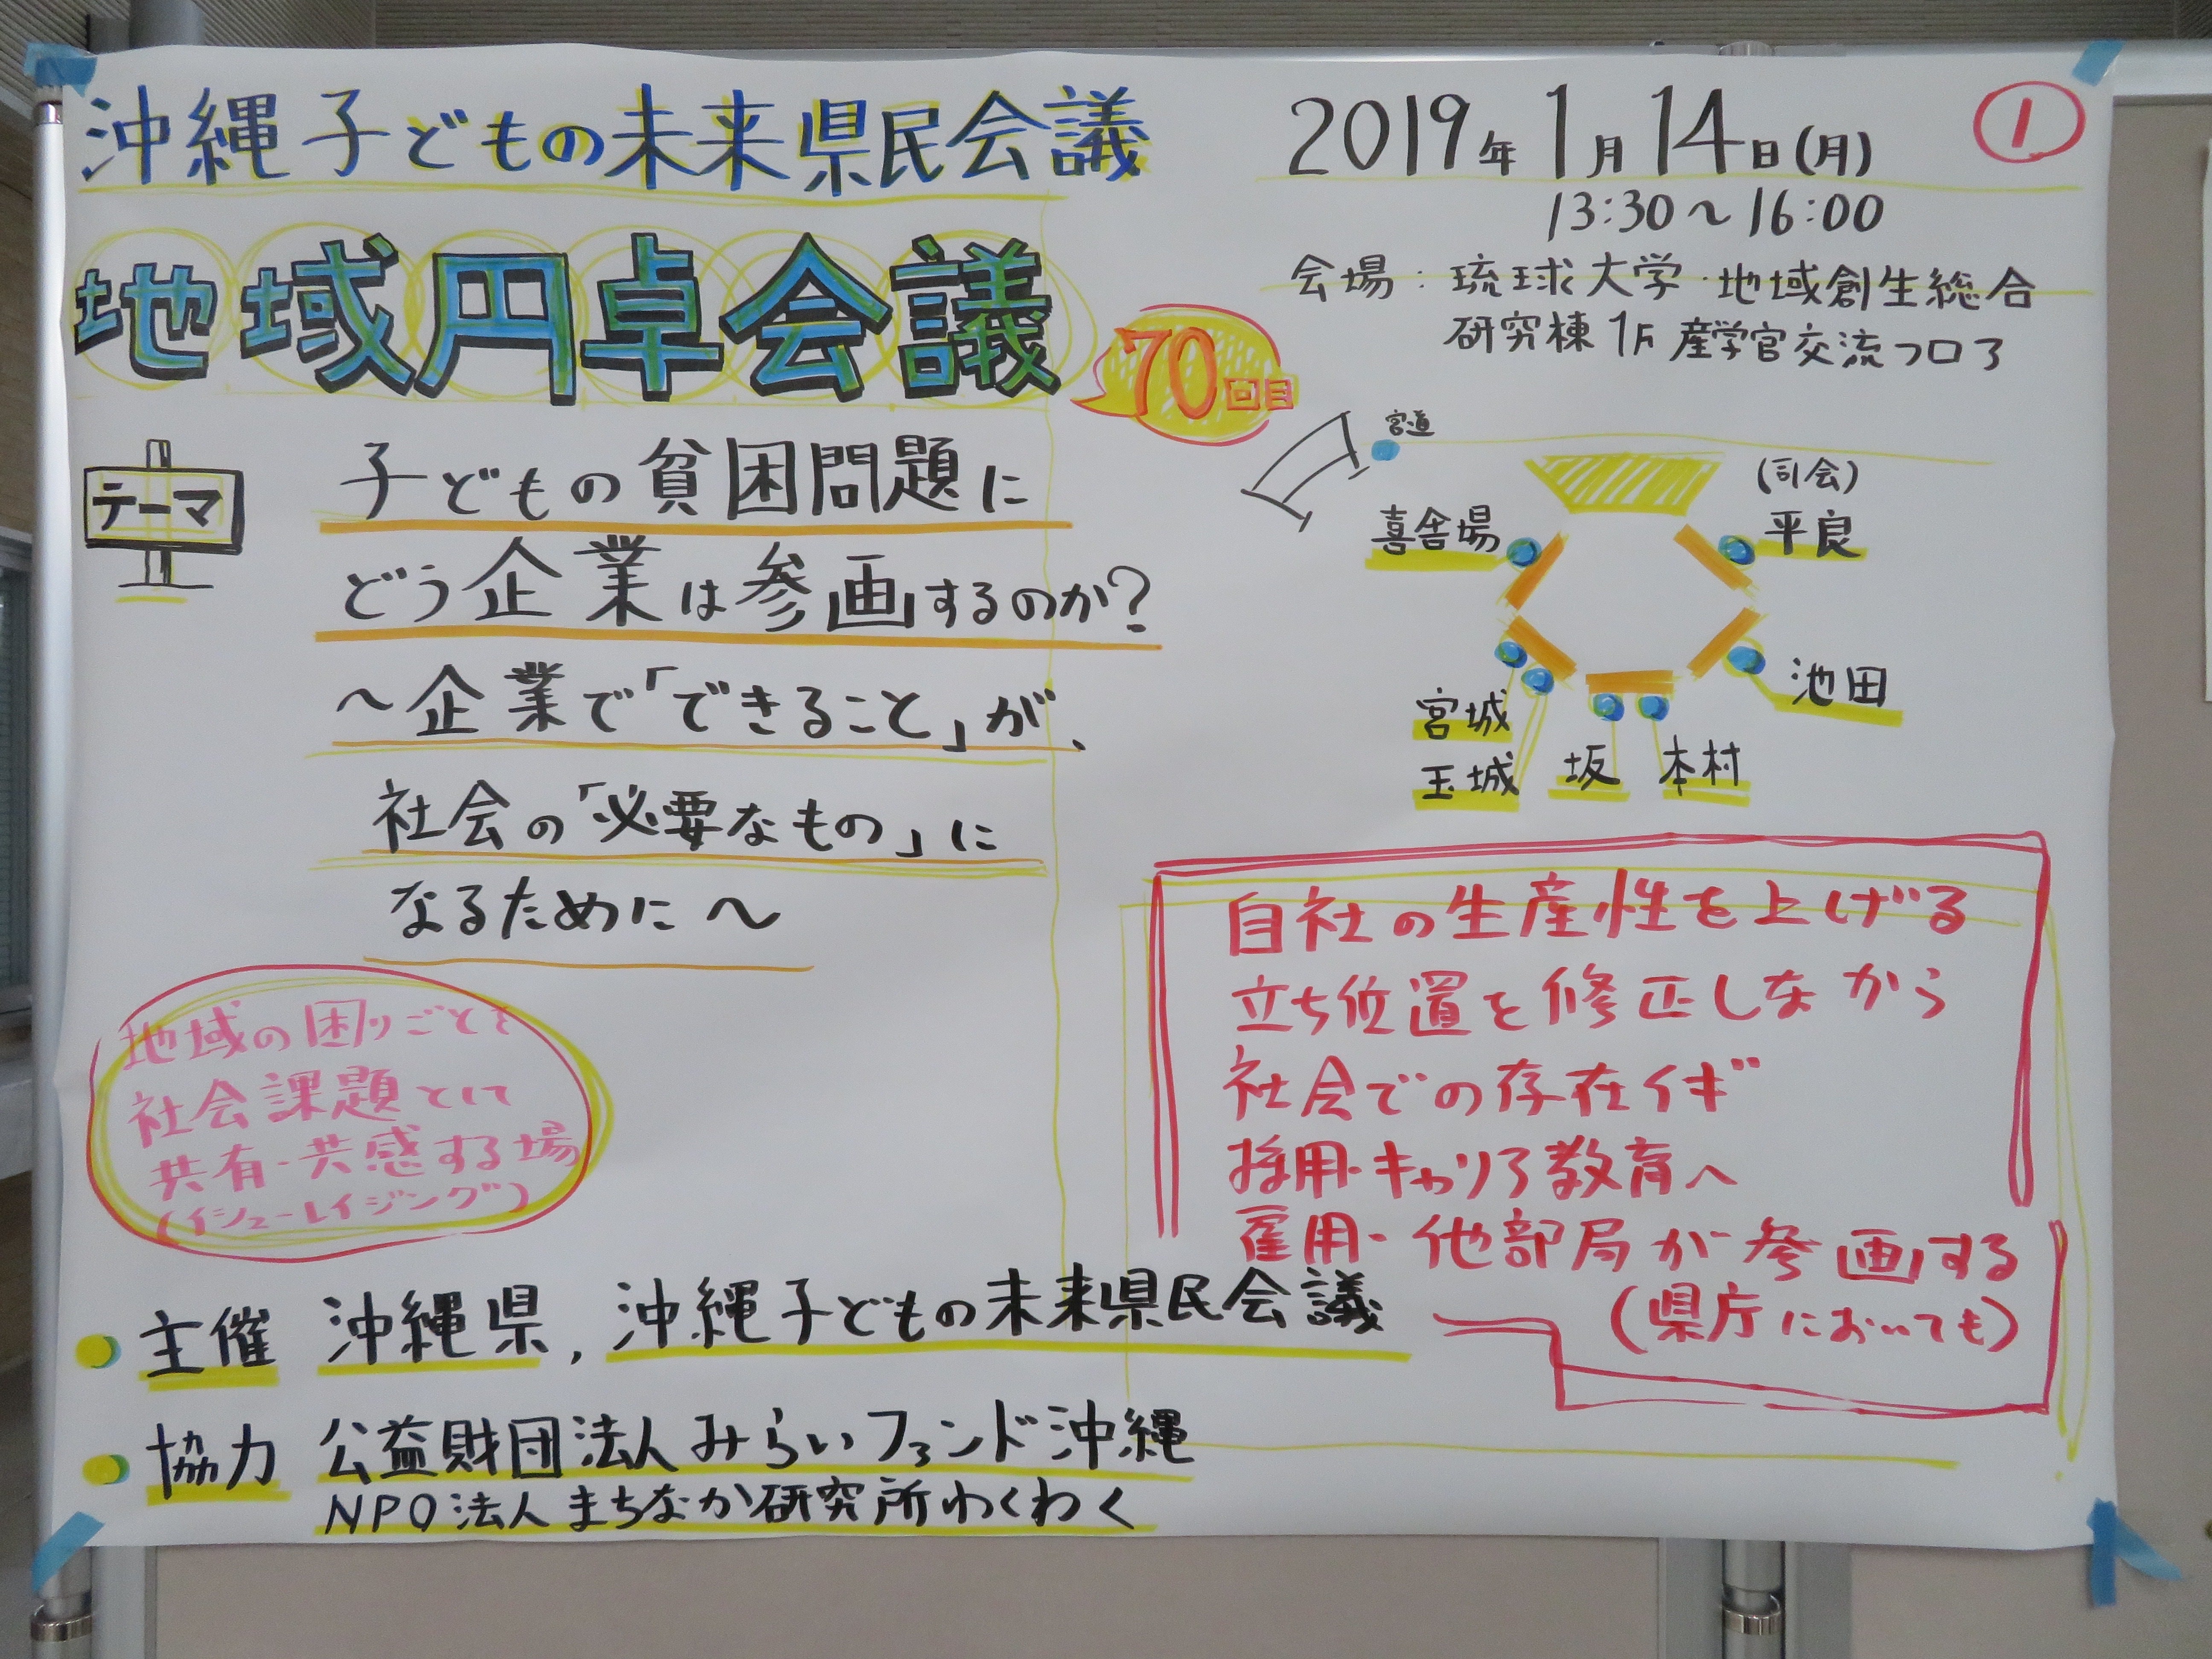 沖縄子どもの未来県民会議
2019年1月14日(月)
①
13:30～16:00
地域円卓会議
70回目
会場:琉球大学 地域創生総合
研究棟 1F 産学官交流フロア
テーマ
子どもの貧困問題に
どう企業は参画するのか?
～企業で「できること」が、
社会の「必要なもの」に
なるために～
宮道
(司会)
平良
喜舎場
池田
宮城
玉城
坂
本村
地域の困りごとを
社会課題として
共有・共感する場
(イシューレイジング)
自社の生産性を上げる
立ち位置を修正しながら
社会での存在イギ
採用・キャリア教育へ
雇用・他部局が参画する
(県庁においても)
主催 沖縄県,沖縄子どもの未来県民会議
協力 公益財団法人みらいファンド沖縄
NPO法人まちなか研究所わくわく